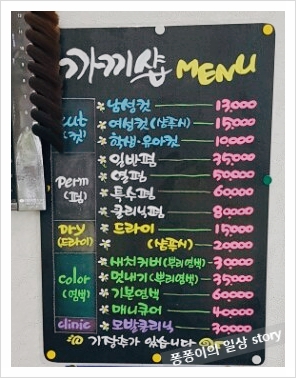 까끼샵 MENU
Cut (컷)
남성컷 13,000
여성컷 (샴푸시) 15,000
학생·유아컷 10,000
Perm (펌)
일반펌 35,000
열펌 50000
특수펌 60000
클리닉펌 80000
Dry (드라이)
드라이 15000
(샴푸시) 20000
Color (염색)
새치커버 (뿌리염색) 30000
멋내기 (뿌리염색) 35,000
기본염색 60000
매니큐어 40000
clinic 모발클리닉
기장추가 있습니다
퐁퐁이의 일상 story